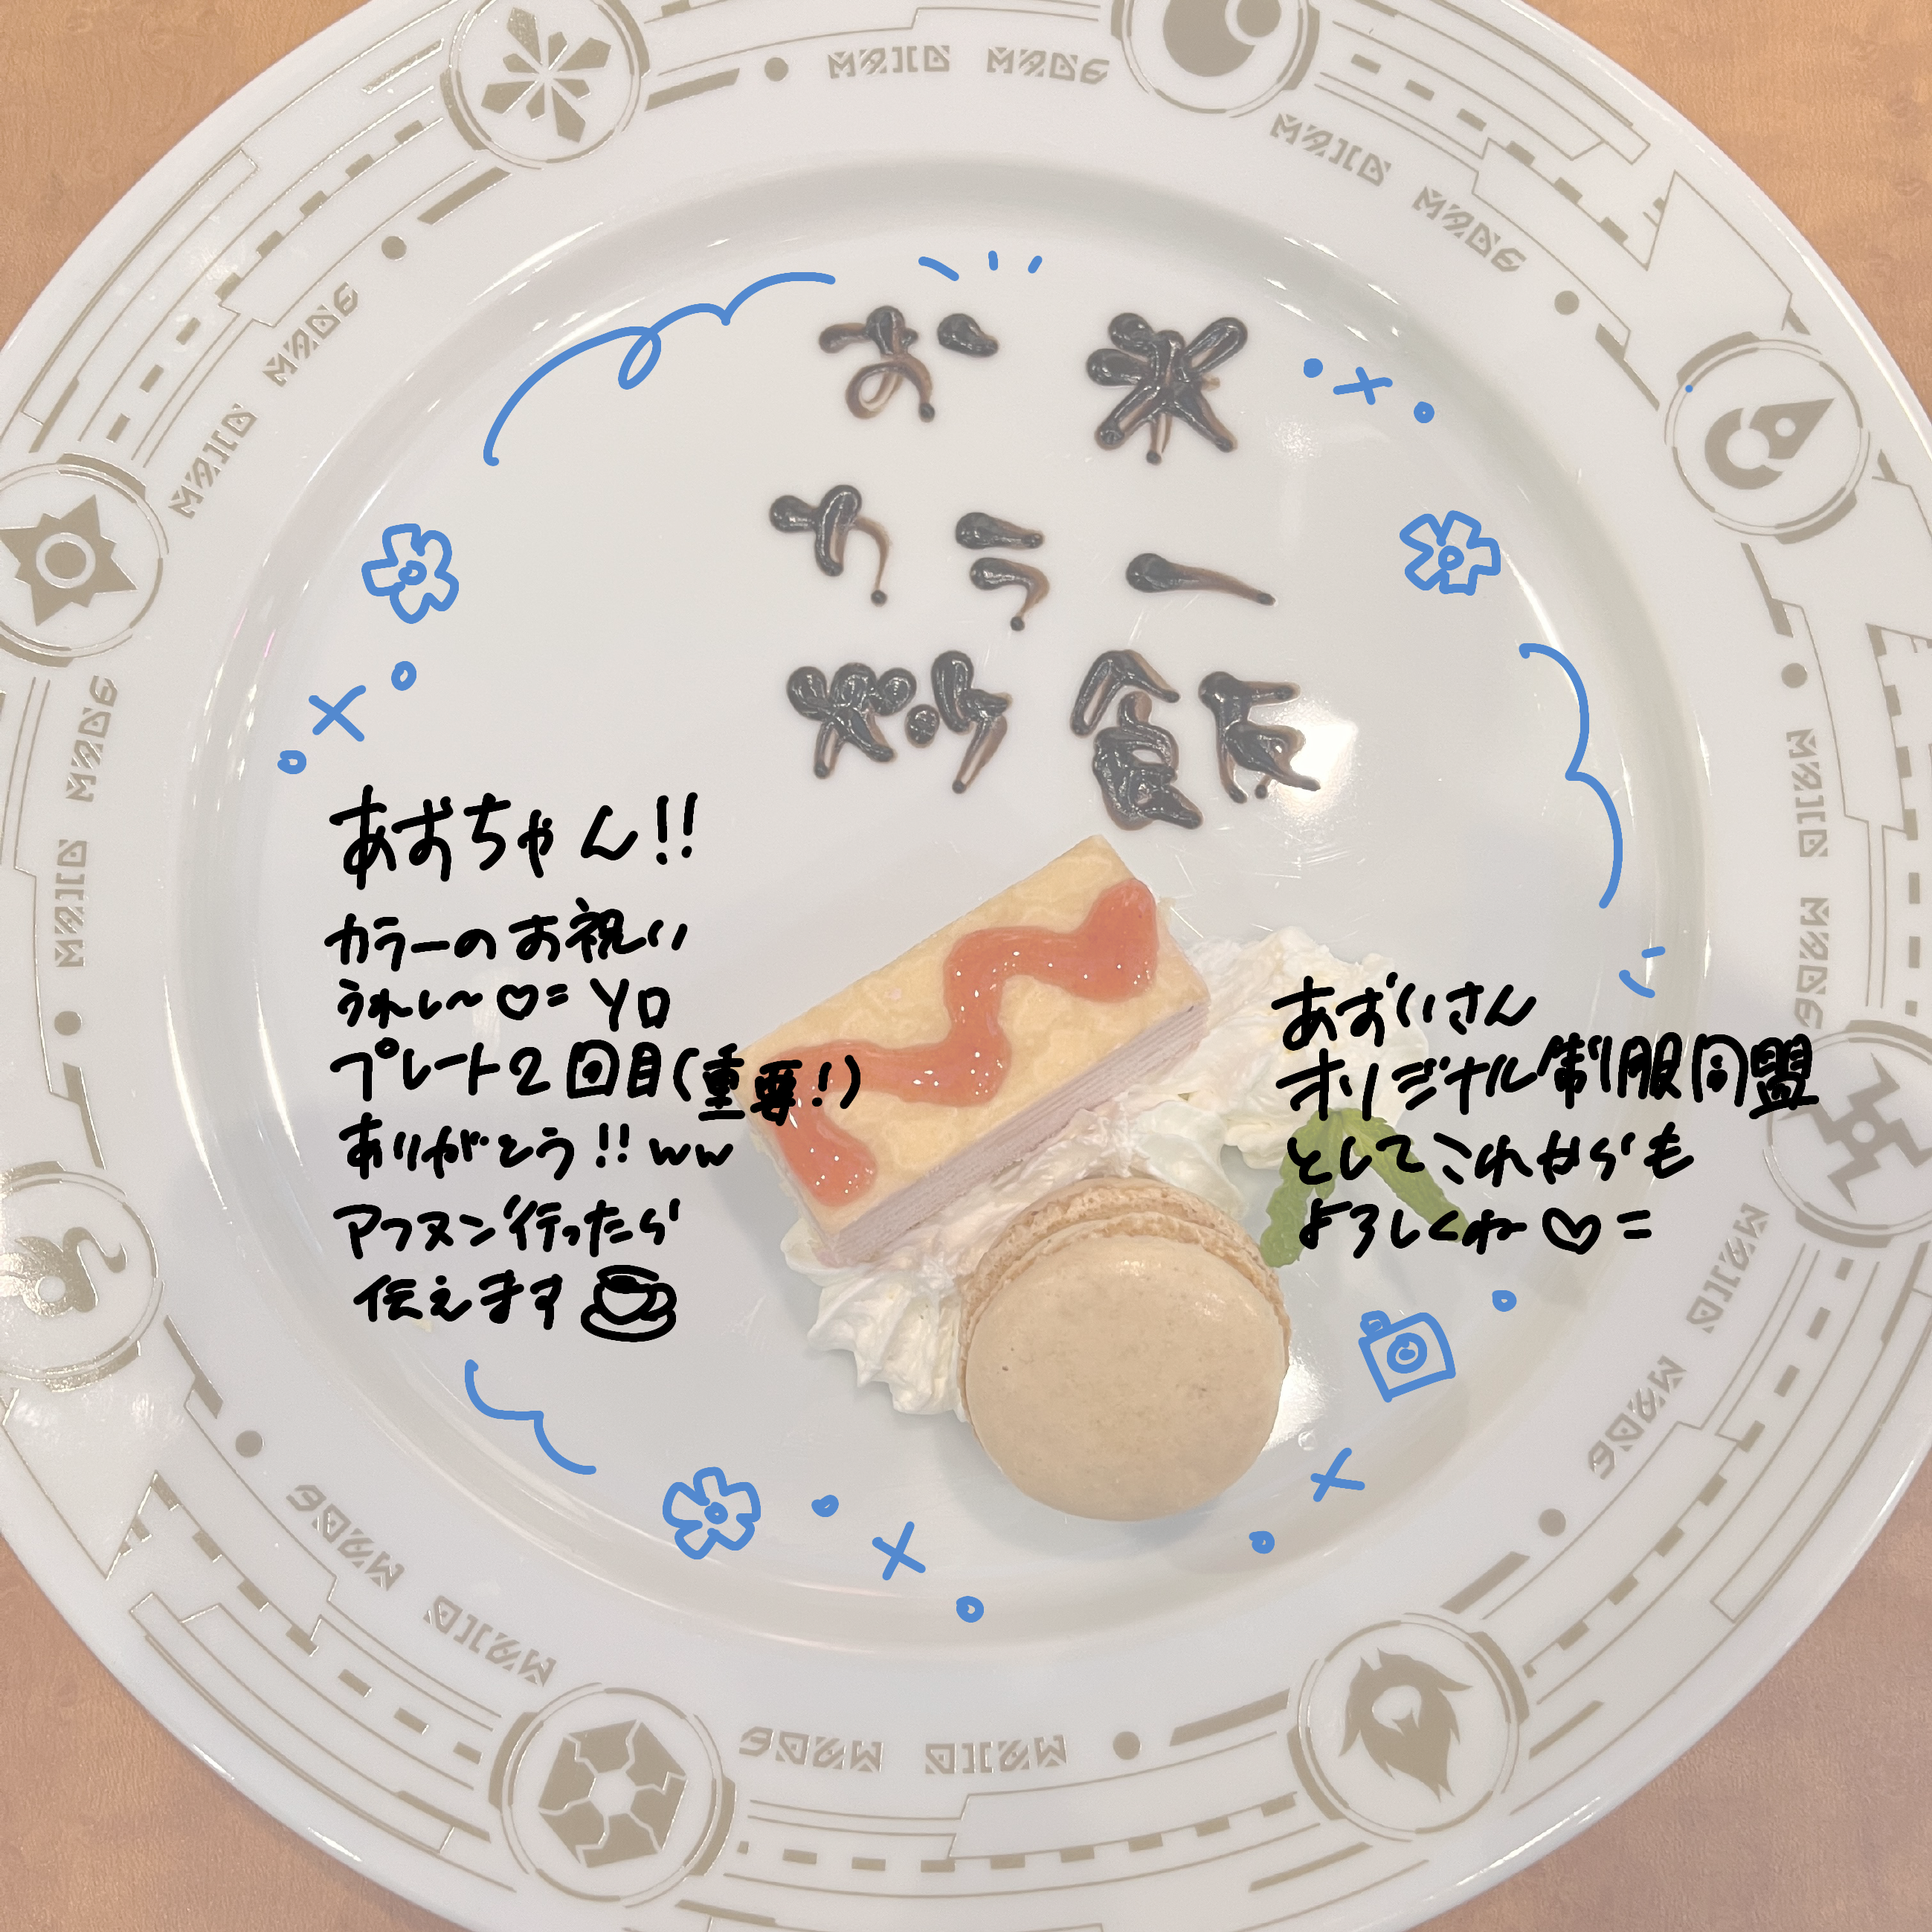 お米
カラー
炒飯
あおちゃん!!
カラーのお祝い
うれし〜♡= YO
プレート2回目(重要!)
ありがとう!! ww
アフヌン行ったら
伝えます
あおいさん
オリジナル制服同盟
としてこれからも
よろしくね♡=
MAID MADE
MAID MADE
MAID MADE
MAID MADE
MAID MADE
MAID MADE
MAID MADE
MAID MADE